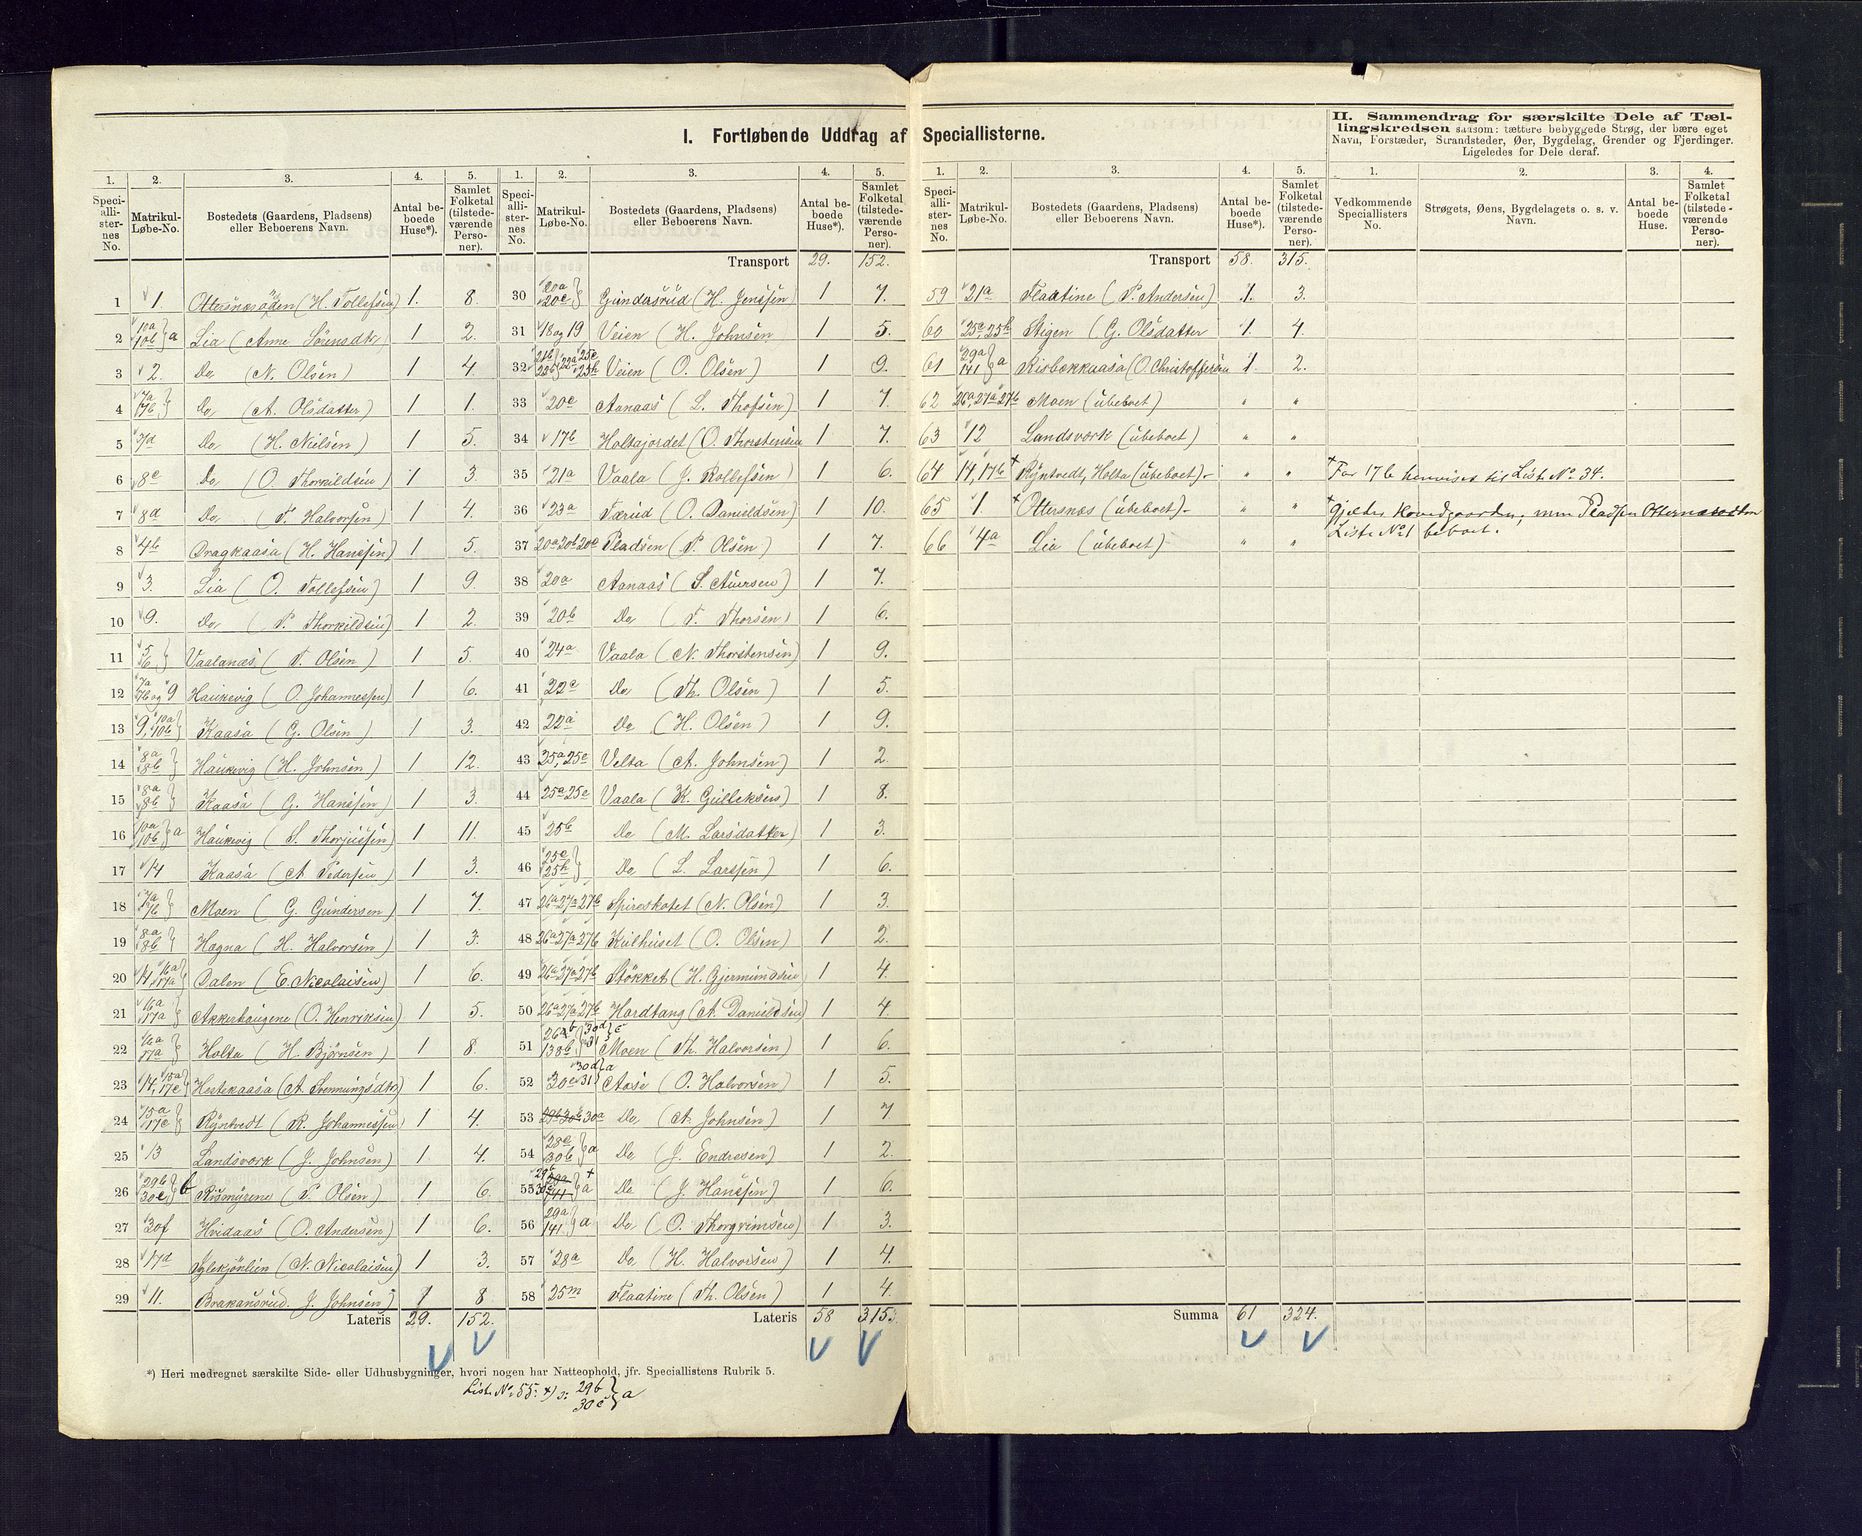 I. Fortløbende Uddrag af Speciallisterne.
II. Sammendrag for særskilte Dele af Tæl-
lingskredsen saasom: tættere bebyggede Strøg, der bære eget
Navn, Forstæder, Strandsteder, Øer, Bygdelag, Grender og Fjerdinger.
Ligeledes for Dele deraf.
1. 2. 3. 4. 5.
Speciallisternes No. Matrikul-Løbe-No. Bostedets (Gaardens, Pladsens) eller Beboerens Navn. Antal beboede Huse*). Samlet Folketal (tilstedeværende Personer).
1 1. Ottersnæsöden (H. Tollefsen) 1. 8.
2 10a 10b } a Lia (Anne Sörensdtr) 1 2.
3 2. Do (N. Olsen) 1 4.
4 7a 7b } Do (A. Olsdatter) 1 1.
5 7d Do (H. Nielsen) 1 5.
6 8c Do (O. Thorkildsen) 1 3.
7 8d Do (T. Halvorsen) 1 4.
8 4b Dragkaasa (H. Hanssen) 1 5.
9 3. Lia (O. Tollefsen) 1 9.
10 9. Do (P. Thorkildsen) 1 2.
11 5 6 } Vaalanæs (T. Olsen) 1 5.
12 7a 7b og 9 Haukevig (O. Johannessen) 1 6.
13 9, 10a 10b } Kaasa (G. Olsen) 1 3.
14 8a 8b } Haukevig (H. Johnsen) 1 12.
15 8a 8b } Kaasa (G. Hanssen) 1 3.
16 10a 10b } a Haukevig (S. Thorjussen) 1 11.
17 14 Kaasa (A Pedersen) 1 3.
18 7a 7b } Moen (G. Gundersen) 1 7.
19 8a 8b } Hagna (H. Halvorsen) 1 3.
20 14, 16a 17a } Dalen (E. Nicolaisen) 1 6.
21 16a 17a } Akkerhaugene (O. Henriksen) 1 5.
22 16a 17a } Holta (H. Bjørnsen) 1 8.
23 14, 15a 17c } Hestekaasa (A. Svennungsdtr) 1 6.
24 15a 17c } Ryntvedt (R. Johannessen) 1 4.
25 13 Landsværk (J. Johnsen) 1 4.
26 29b 30c } b Rismyrene (P. Olsen) 1 6.
27 30f Hvidaas (O. Andersen) 1 6.
28 17d (N. Nicolaisen) 1 3.
29 11. Brakansrud. J. Johnsen 1 8
Lateris 29. 152.
1. 2. 3. 4. 5.
Speciallisternes No. Matrikul-Løbe-No. Bostedets (Gaardens, Pladsens) eller Beboerens Navn. Antal beboede Huse*). Samlet Folketal (tilstedeværende Personer).
Transport 29. 152.
30 20a 20c } Gundasrud (H. Jenssen) 1 7.
31 18 og 19 Veien (H. Johnsen) 1 5.
32 21b 22b } 22a 25c 25h Veien (O. Olsen) 1 9.
33 20c Aanaas (L. Thofsen) 1 7.
34 17b Holtajordet (O. Thorstensen 1 7.
35 21a Vaala (J. Rollefsen) 1 6.
36 23a Færud (O. Danieldsen) 1 10.
37 20a 20b 20c Pladsen (P. Olsen) 1 7.
38 20a Aanaas (S. Aversen) 1 7.
39 20b Do (T. Thorsen) 1 6.
40 24a Vaala (N. Thorstensen) 1 9.
41 22c Do (Th. Olsen) 1 5.
42 22a Do (H. Olsen) 1 9.
43 25a, 25c Velta (A. Johnsen) 1 2.
44 25a 25c Vaala (K. Gulleksen) 1 8.
45 25b Do (M. Larsdatter) 1 3.
46 25c 25h } Do (L. Larssen) 1 6.
47 26a 27a 27b Spireskotet (N. Olsen) 1 3.
48 26a 27a 27b Kulhuset (O. Olsen) 1 2.
49 26a 27a 27b Stökket (H. Gjermundsen 1 4
50 26a 27a 27b Hardtang (A. Danieldsen) 1 4.
51 26b 138b } 30d 31 } c Moen (Th. Halvorsen) 1 6.
52 30c 30d 31 } a Aase (O. Halvorsen) 1 5.
53 29b 30b 30a Do (A. Johnsen) 1 7.
54 28c 30b } a Do (J. Endresen) 1 2.
55 29b 30c 29a 141 } a + Do (J. Hanssen) 1 6.
56 29a 141 } a Do (O. Thorgrimsen) 1 3.
57 28a Do (H. Halvorsen) 1 4.
58 25m Flaatine (Th. Olsen) 1 4.
Lateris 58 315.
*) Heri medregnet særskilte Side- eller Udhusbygninger, hvori nogen har Natteophold, jfr. Speciallistens Rubrik 5.
List. No. 55. +) s: 29b 30c } a
1. 2. 3. 4. 5.
Speciallisternes No. Matrikul-Løbe-No. Bostedets (Gaardens, Pladsens) eller Beboerens Navn. Antal beboede Huse*). Samlet Folketal (tilstedeværende Personer).
Transport 58. 315.
59 21a Flaatine (P. Andersen) 1. 3.
60 25a, 25h Stigen (G. Olsdatter 1. 4.
61 29a 141 } a Risbækkaasa (O. Christoffersen 1. 2.
62 26a, 27a 27b Moen (übeboet) " "
63 12 Landsværk (übeboet) " "
64 14, 17b + Ryntvedt, Holta (übeboet).- " "
65 1. + Ottersnæs (übeboet).- " "
66 4a Lia (übeboet) " "
Summa 61 324.
1. 2. 3. 4.
Vedkommende Speciallisters No. Strøgets, Øens, Bygdelagets o. s. v. Navn. Antal beboede Huse. Samlet Folketal (tilstedeværende Personer).
+ For 17b henvises til List No. 34.
+ gjelder hovedgaarden, men Pladsen Ottersnæsöden
Liste No. 1 beboet.